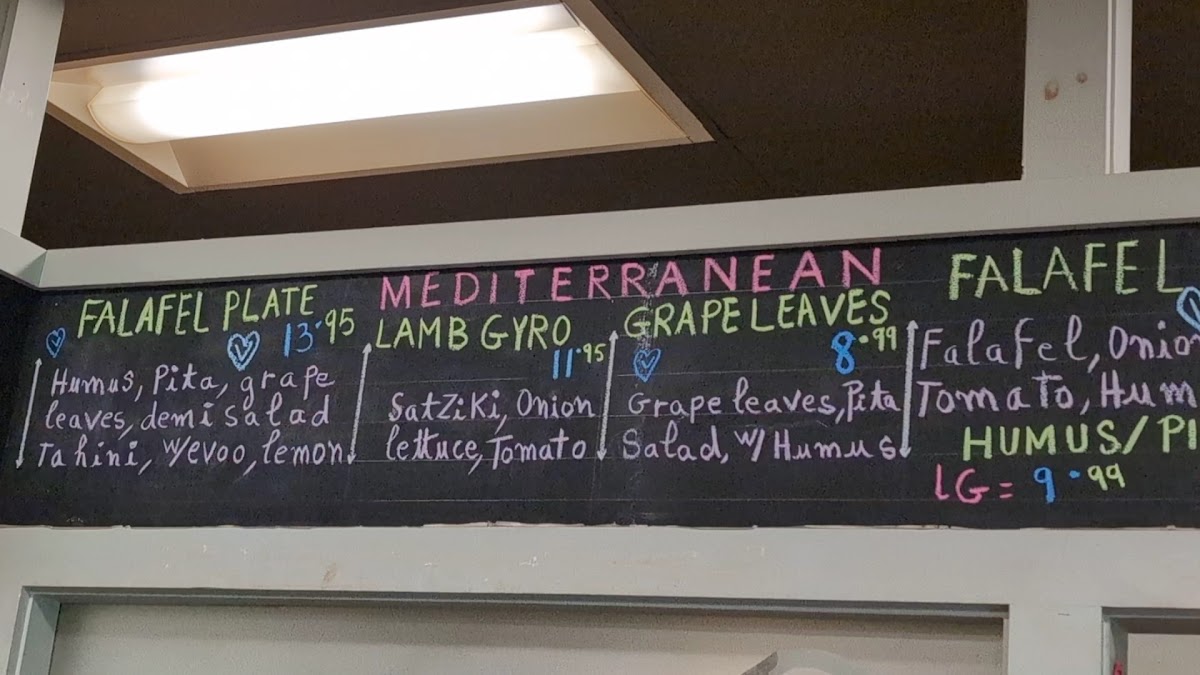 MEDITERRANEAN
FALAFEL PLATE
13.95
Humus, Pita, grape
leaves, demi salad
Tahini, w/evoo, lemon
LAMB GYRO
11.95
SatZiKi, Onion
lettuce, Tomato
GRAPE LEAVES
8.99
Grape leaves, Pita
Salad, w/ Humus
FALAFEL
Falafel, Onio
Tomato, Hum
HUMUS/ PI
LG = 9.99